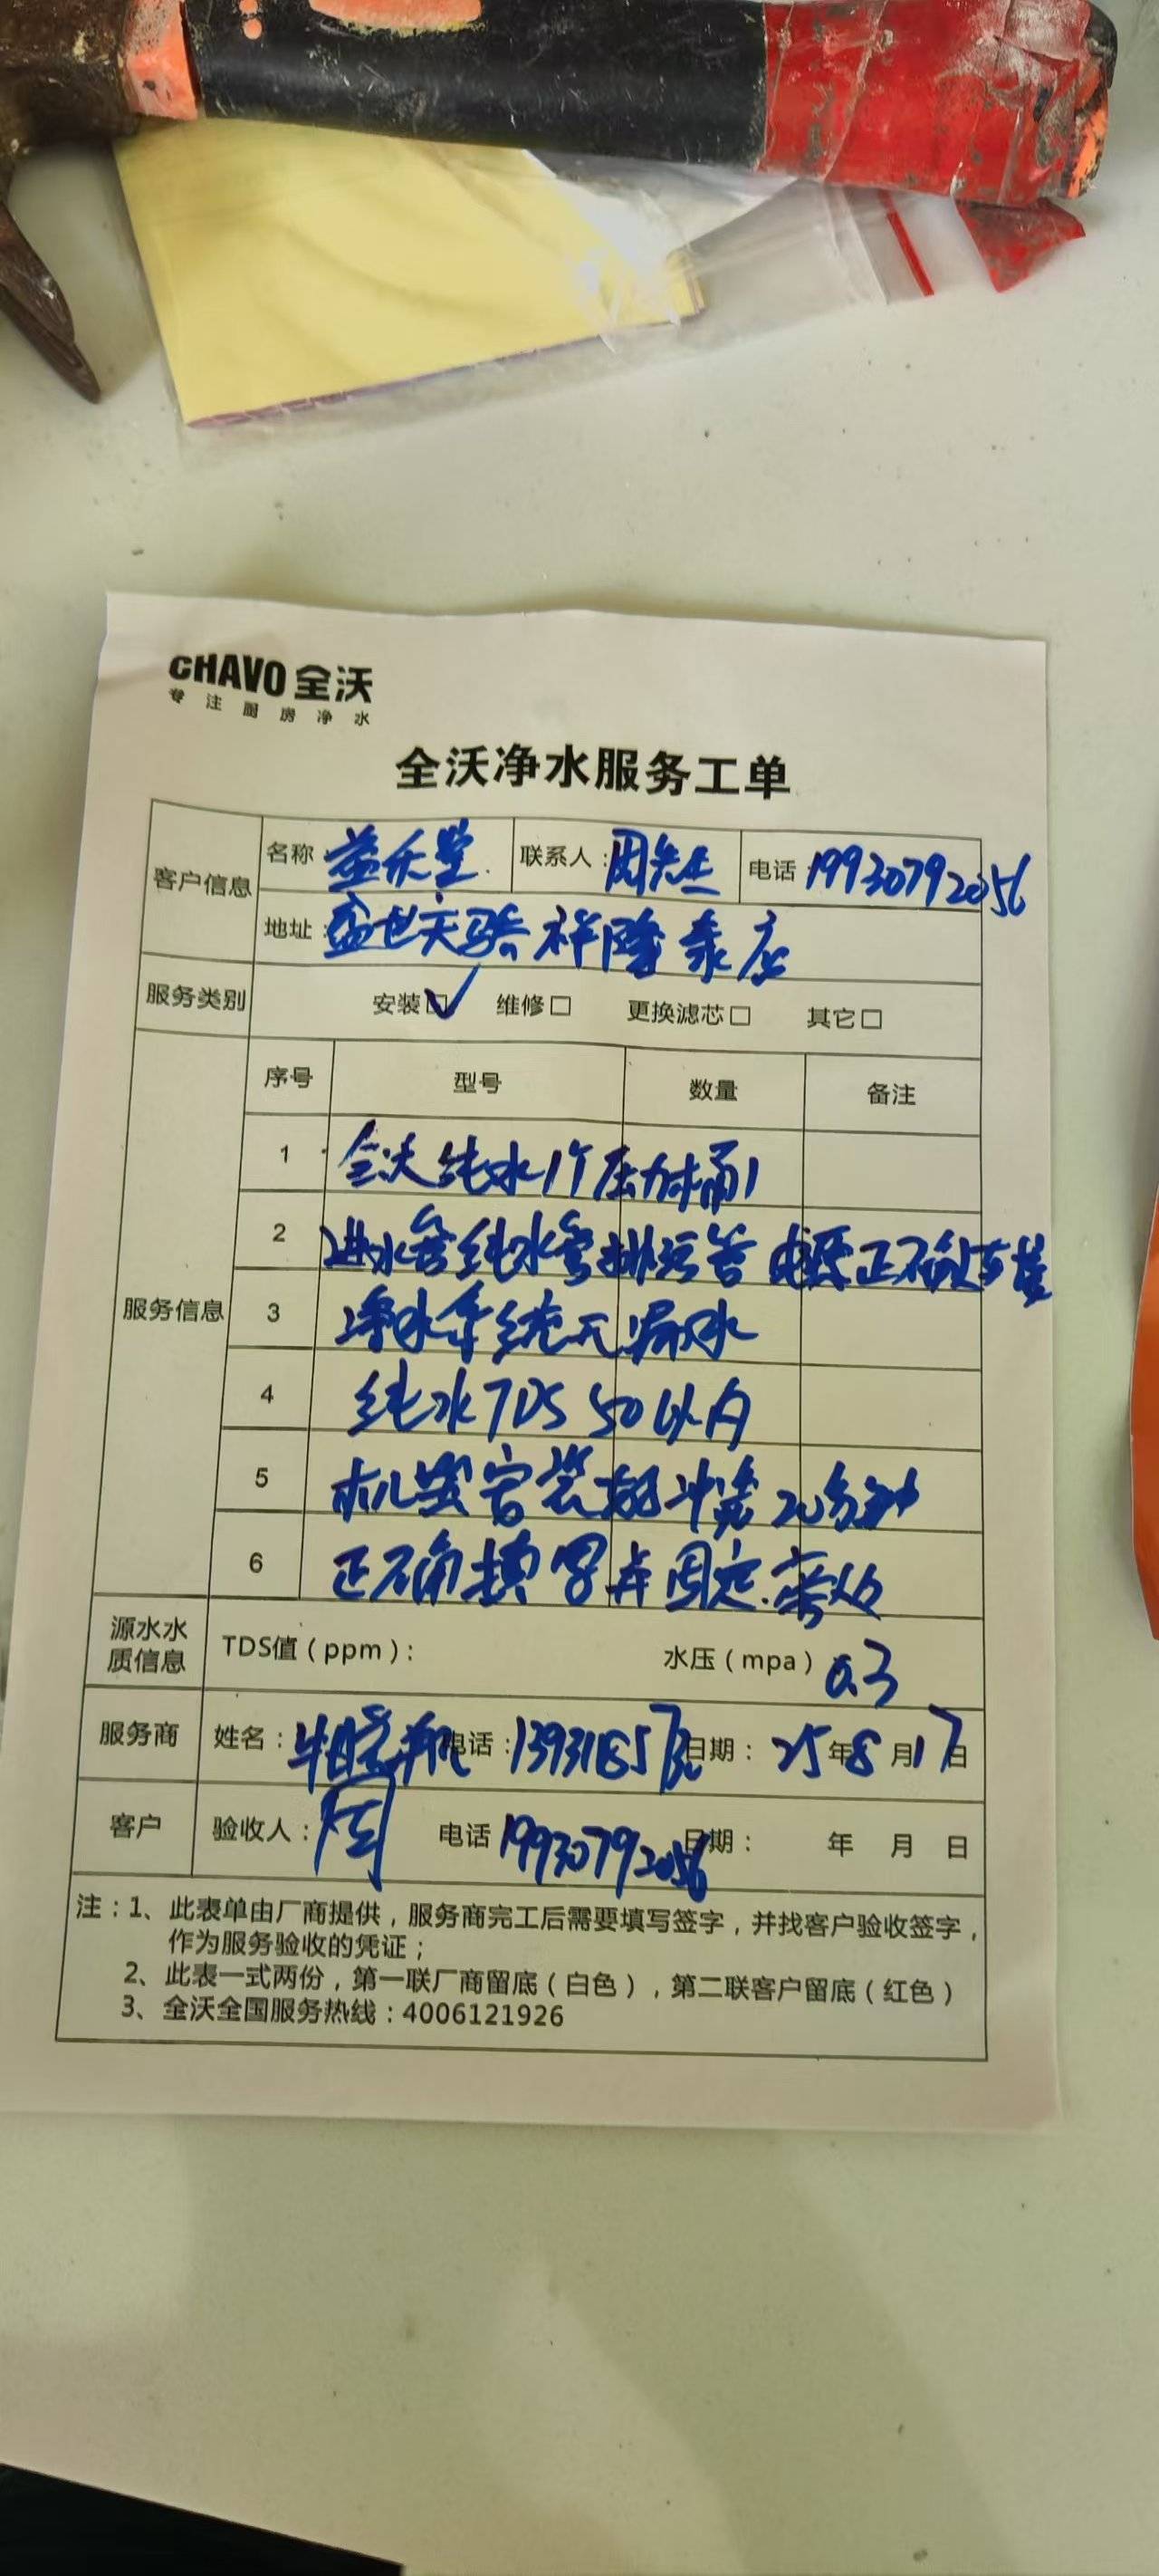 CHAVO 全沃
专注厨房净水
全沃净水服务工单
客户信息 名称 益禾堂 联系人: 电话 19930792056
地址: 盛世天骄 祥隆泰店
服务类别 安装☑ 维修□ 更换滤芯□ 其它□
服务信息 序号 型号 数量 备注
1 全沃纯水1个压力桶1
2 进水管纯水管排污管 电源正确安装
3 净水系统无漏水
4 纯水TDS 50以内
5 机器安装好冲洗20分钟
6 正确填写并固定
源水水质信息 TDS值(ppm): 水压(mpa) 0.3
服务商 姓名: 电话: 日期: 25年8月17日
客户 验收人: 周 电话 19930792056 日期: 年 月 日
注:1、此表单由厂商提供,服务商完工后需要填写签字,并找客户验收签字,
作为服务验收的凭证;
2、此表一式两份,第一联厂商留底(白色),第二联客户留底(红色)
3、全沃全国服务热线:4006121926